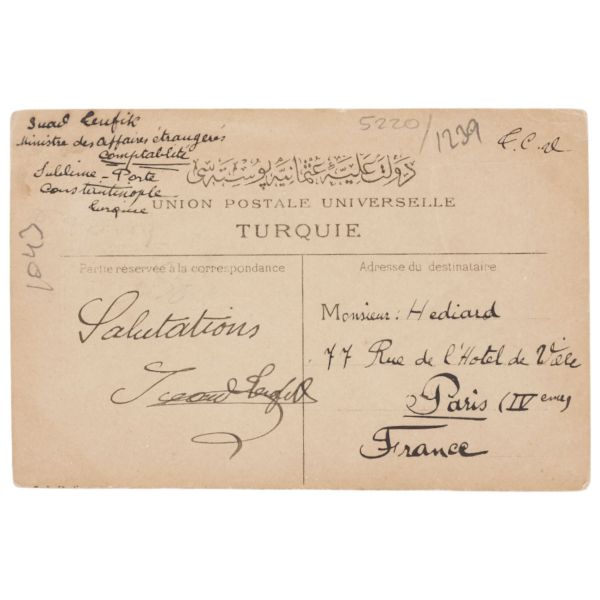 Suad Teufik
Ministre des Affaires étrangeres
Comptablité
Sublime-Porte
Constantinople
Turquie
5220/1239
1043
دولت عليۀ عثمانيه پوسته سى
UNION POSTALE UNIVERSELLE
TURQUIE
Partie réservée à la correspondance
Salutations
Adresse du destinataire
Monsieur: Hediard
77 Rue de l'Hotel de Ville
Paris (IV eme)
France